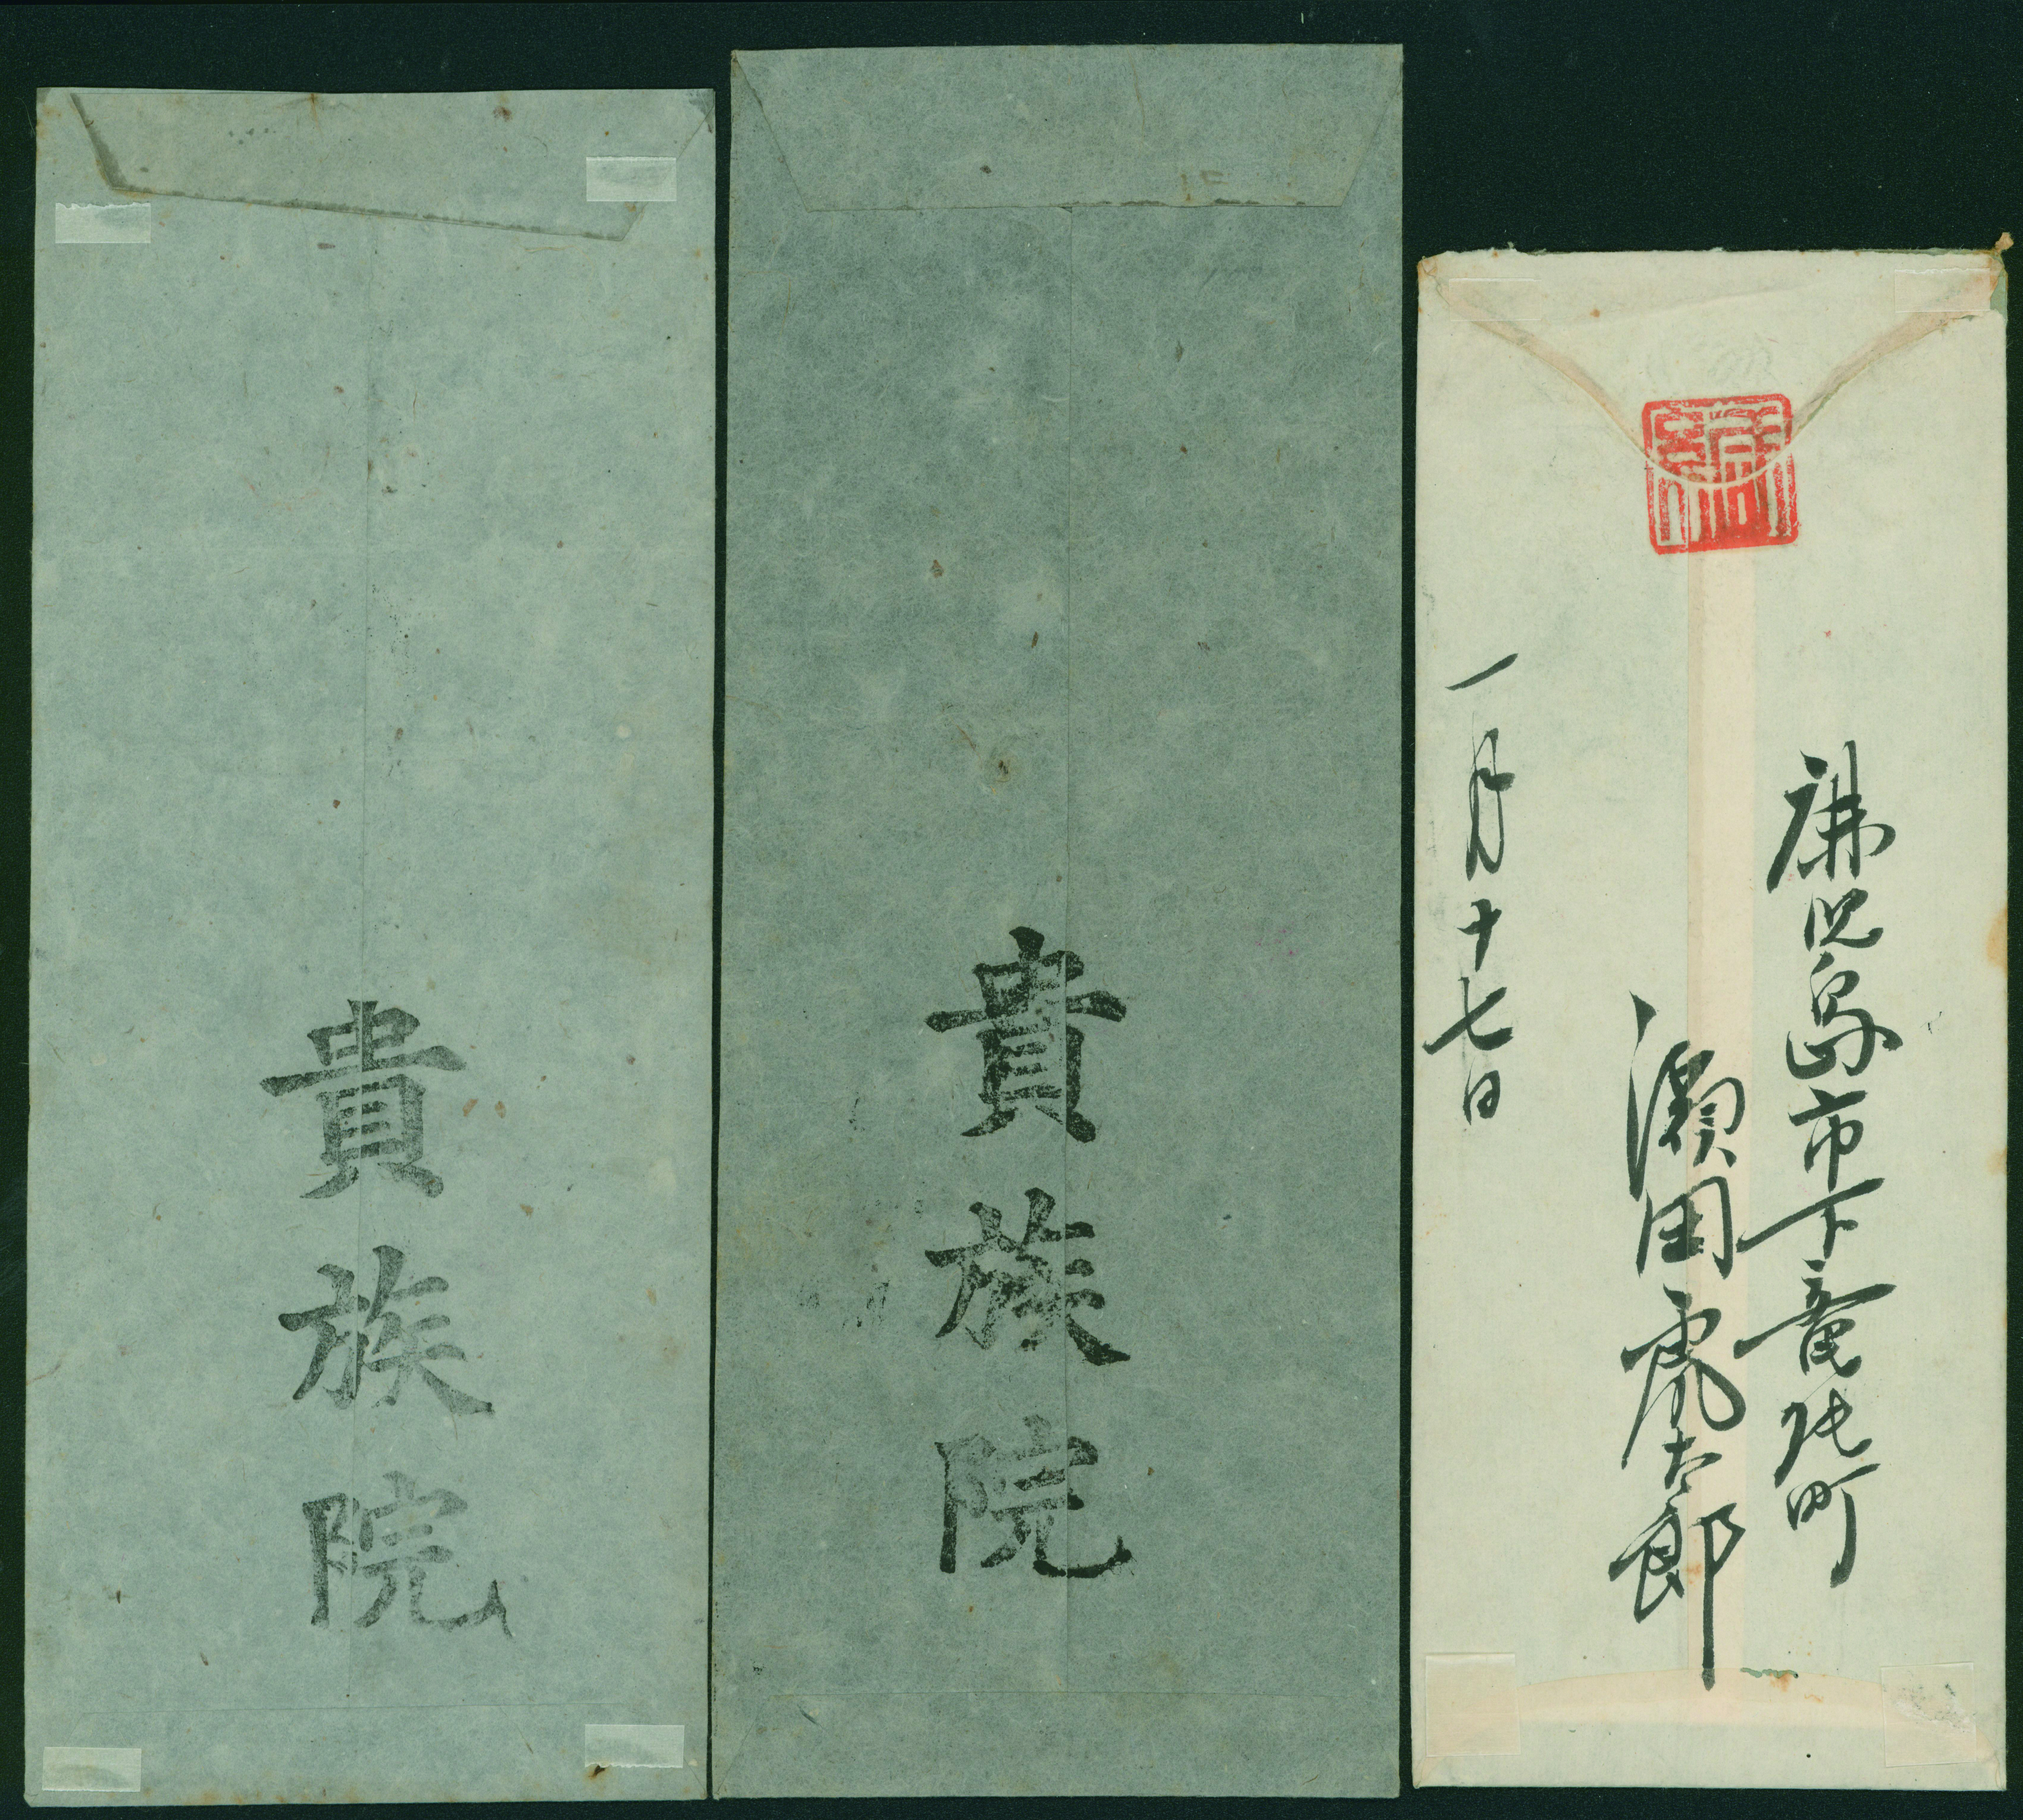 鹿児島市下竜尾町
濱田虎太郎
一月十七日
緘
貴族院
貴族院